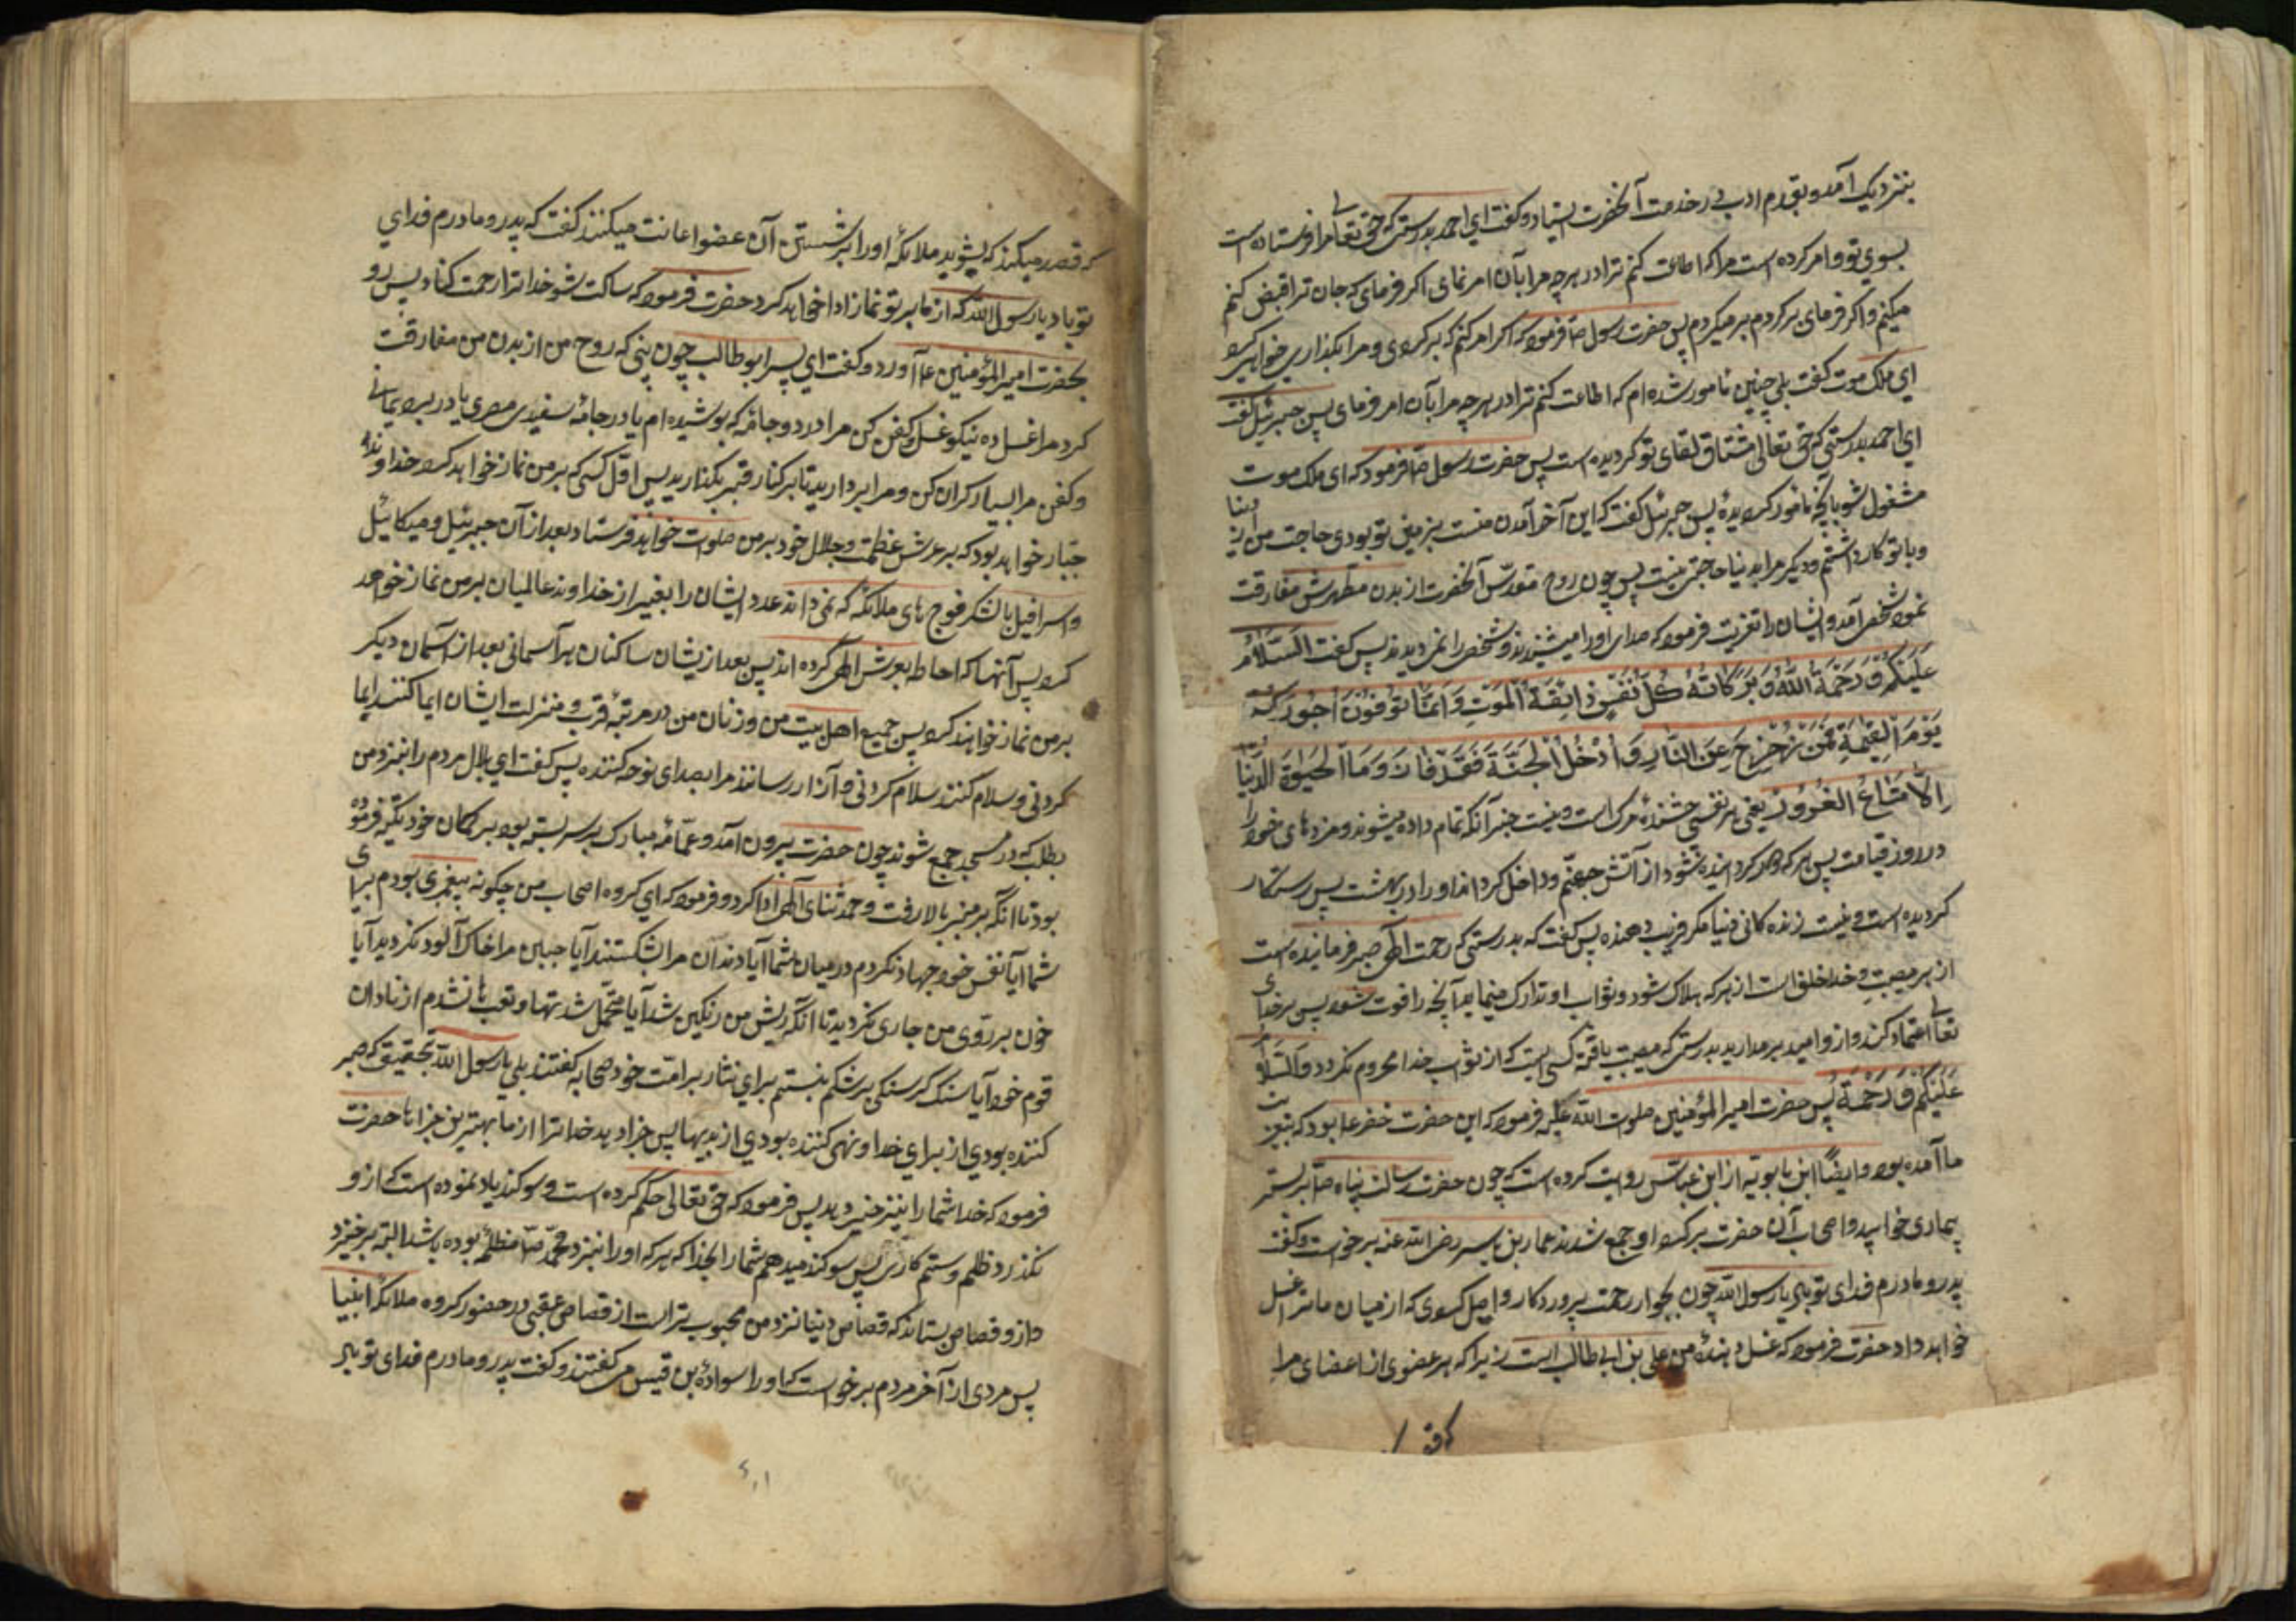 بنزدیک آمد و بقدم ادب در خدمت آنحضرت ایستاد و گفت ای احمد بدرستی که حق تعالی مرا فرستاده است
بسوی تو و امر کرده است مرا که اطاعت کنم ترا در هرچه مرا بآن امر نمای اکر فرمای که جان ترا قبض کنم
میکنم و اکر فرمای برکردم برمیکردم پس حضرت رسول صا فرمود که اکر امر کنم که برکردی و مرا بکذاری خواهی کرد
ای ملک موت کفت بلی چنین مامور شده ام که اطاعت کنم ترا در هرچه مرا بآن امر فرمای پس جبرئیل کفت
ای احمد بدرستی که حق تعالی مشتاق لقای تو کردیده است پس حضرت رسول صا فرمود که ای ملک موت
مشغول شو بآنچه مامور کردیدهٔ پس جبرئیل کفت که این آخر آمدن منست بزمین تو بودی حاجت من از دنیا
و با تو کار داشتم و دیکر مرا بدنیا حاجتی نیست پس چون روح مقدّس آنحضرت از بدن مطهرش مفارقت
نمود شخصی آمد و ایشان را تعزیت فرمود که صدای او را میشنیدند و شخص را نمی دیدند پس کفت السَّلامُ
عَلَیْکُمْ وَ رَحْمَةُ اللهِ وَ بَرَکَاتُهُ کُلُّ نَفْسٍ ذَائِقَةُ الْمَوْتِ وَ اِنَّمَا تُوَفَّوْنَ اُجُورَکُمْ
یَوْمَ الْقِیٰمَةِ فَمَنْ زُحْزِحَ عَنِ النَّارِ وَ اُدْخِلَ الْجَنَّةَ فَقَدْ فَازَ وَ مَا الْحَیٰوةُ الدُّنْیَا
اِلَّا مَتَاعُ الْغُرُورِ یعنی هر نفسی چشندهٔ مرک است و نیست جز آنکه تمام داده میشوند مزدهای خود را
در روز قیامت پس هر که دور کردانیده شود از آتش جهنّم و داخل کردانند او را در بهشت پس رستکار
کردیده است و نیست زنده کانی دنیا مکر فریب دهنده پس کفت که بدرستی که رحمت الهی صبر فرماینده است
از هر مصیبت و خدا خلف است از هر که هلاک شود و ثواب او تدارک مینماید آنچه را فوت شود پس بر خدای
تعالی اعتماد کنید و از و امید بر مدارید بدرستی که مصیبت یافته کسی است که از ثواب خدا محروم کردد وَالسَّلامُ
عَلَیْکُمْ وَ رَحْمَةُ پس حضرت امیر المؤمنین صلوات الله علیه فرمود که این حضرت خضر عا بود که بتعزیت
ما آمده بود و ایضاً ابن بابویه از ابن عباس روایت کرده است که چون حضرت رسالت پناه صا بر بستر
بیماری خوابید و اصحاب آن حضرت بر کرد او جمع شدند عمار بن یاسر رضی الله عنه برخواست و کفت
پدر و مادرم فدای تو باد یا رسول الله چون بجوار رحمت پروردکار واصل کردی که از میان ما ترا غسل
خواهد داد حضرت فرمود که غسل دهندهٔ من علی بن ابی طالب است زیرا که هر عضوی از اعضای مرا
که قصد میکند که بشوید ملائکه او را بر شستن آن عضو اعانت میکنند کفت که پدر و مادرم فدای
تو باد یا رسول الله که از ما بر تو نماز ادا خواهد کرد حضرت فرمود که ساکت شو خدا ترا رحمت کناد پس رو
بحضرت امیر المؤمنین عا آورد و کفت ای پسر ابو طالب چون بینی که روح من از بدن من مفارقت
کرد مرا غسل ده نیکو غسل و کفن کن مرا در دو جامه که پوشیده ام یا در جامهٔ سفیدی مصری یا در برد یمانی
و کفن مرا بسیار کران مکن و مرا بردارید تا بر کنار قبر بکذارید پس اوّل کسی که بر من نماز خواهد کرد خداوند
جبّار خواهد بود که بر عرش عظمت و جلال خود بر من صلوات خواهد فرستاد بعد از آن جبرئیل و میکائیل
و اسرافیل با لشکر فوج های ملائکه که نمی داند عدد ایشان را بغیر از خداوند عالمیان بر من نماز خواهند
کرد پس آنها که احاطه بعرش الهی کرده اند پس بعد از ایشان ساکنان هر آسمانی بعد از آسمان دیکر
بر من نماز خواهند کرد پس جمیع اهل بیت من و زنان من در مرتبهٔ قرب و منزلت ایشان ایما کنند ایما
کردنی و سلام کنند سلام کردنی و آزار نرسانند مرا بصدای نوحه کننده پس کفت ای بلال مردم را بنزد من
بطلب که در مسجد جمع شوند چون حضرت بیرون آمد و عمّامهٔ مبارک بر سر بسته بود بر کمان خود تکیه فرموده
بود تا آنکه بر منبر بالا رفت و حمد و ثنای الهی ادا کرد و فرمود که ای کروه اصحاب من چکونه پیغمبری بودم برای
شما آیا بنفس خود جهاد نکردم در میان شما آیا دندان مرا نشکستند آیا جبین مرا خاک آلود نکردید آیا
خون بر روی من جاری نکردید تا آنکه ریش من رنکین شد آیا متحمّل شدتها و تعب ها نشدم از نادان
قوم خود آیا سنک کرسنکی بر شکم نبستم برای ایثار بر امّت خود صحابه کفتند بلی یا رسول الله بتحقیق که صبر
کننده بودی از برای خدا و نهی کننده بودی از بدیها پس جزا دهد خدا ترا از ما بهترین جزاها حضرت
فرمود که خدا شما را نیز جزا دهد پس فرمود که حق تعالی حکم کرده است و سوکند یاد نموده است که از و
نکذرد ظلم و ستم کاری پس سوکند میدهم شما را بخدا که هر که او را بنزد محمّد صا مظلمه بوده باشد البته برخیزد
و از و قصاص بستاند که قصاص دنیا نزد من محبوب تر است از قصاص عقبی در حضور کروه ملائکه و انبیا
پس مردی از آخر مردم برخواست که او را سوادهٔ بن قیس می کفتند و کفت پدر و مادرم فدای تو باد